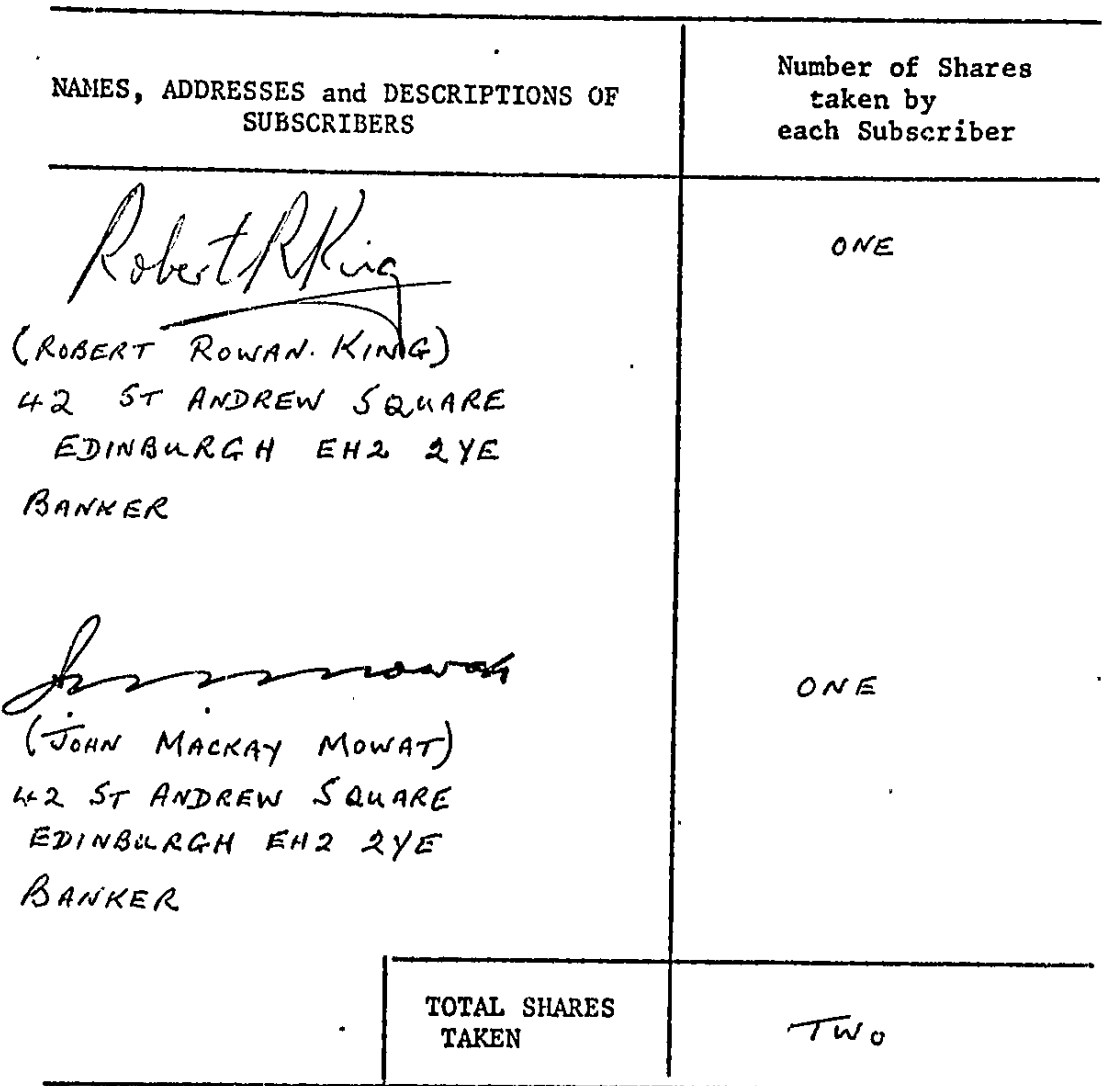 NAMES, ADDRESSES and DESCRIPTIONS OF
SUBSCRIBERS
Number of Shares
taken by
each Subscriber
Robert R King
ONE
(ROBERT ROWAN. KING)
42 ST ANDREW SQUARE
EDINBURGH EH2 2YE
BANKER
Mowat
ONE
(JOHN MACKAY MOWAT)
42 ST ANDREW SQUARE
EDINBURGH EH2 2YE
BANKER
TOTAL SHARES
TAKEN
TWO